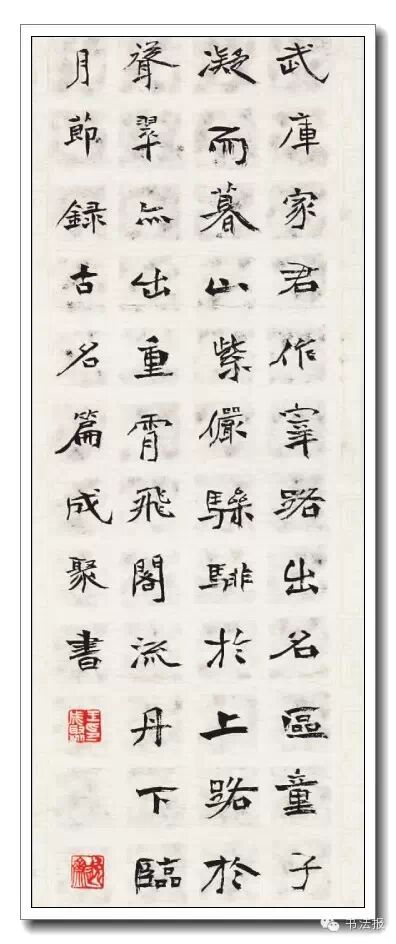 武庫家君作宰路出名區童子
凝而暮山紫儼驂騑於上路於
聳翠亦出重霄飛閣流丹下臨
月節録古名篇成聚書
王印成聚
书法报